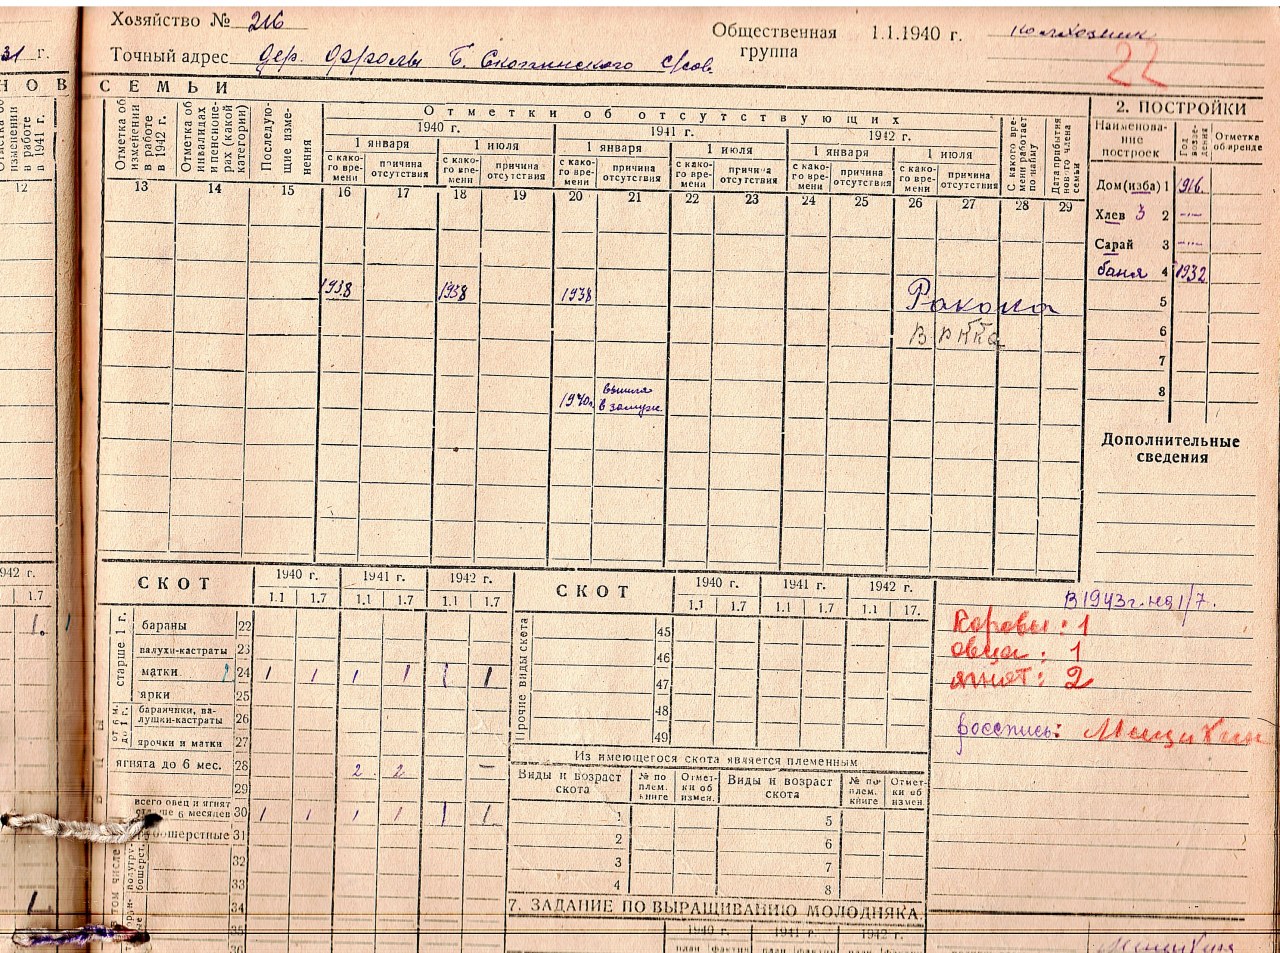 Хозяйство № 216
Общественная группа 1.1.1940 г. колхозник
22
31 г.
Точный адрес дер. Фроловы Б. Скопинского с/сов.
НОВ СЕМЬИ
2. ПОСТРОЙКИ
изменении в работе в 1941 г.
Отметка об изменении в работе в 1942 г.
Отметка об инвалидах и пенсионерах (какой категории)
Последующие изменения
Отметки об отсутствующих
1940 г. 1941 г. 1942 г.
1 января 1 июля 1 января 1 июля 1 января 1 июля
с какого времени причина отсутствия с какого времени причина отсутствия с какого времени причина отсутствия с какого времени причина отсутствия с какого времени причина отсутствия с какого времени причина отсутствия
С какого времени работает по найму
Дата прибытия нового члена семьи
Наименование построек Год возведения Отметка об аренде
12 13 14 15 16 17 18 19 20 21 22 23 24 25 26 27 28 29
Дом (изба) 1 916.
Хлев 3 2 -"-
Сарай 3 -"-
баня 4 1932
1938 1938 1938
5
6
В РККА
7
8
1940г. вышла в замуж
Дополнительные сведения
942 г.
1.7
1. 1
СКОТ 1940 г. 1941 г. 1942 г.
1.1 1.7 1.1 1.7 1.1 1.7
старше 1 г.
бараны 22
валухи-кастраты 23
матки 24 1 1 1 1 1 1
ярки 25
от 6 м. до 1 г.
баранчики, валушки-кастраты 26
ярочки и матки 27
ягнята до 6 мес. 28 2 2 —
29
всего овец и ягнят старше 6 месяцев 30 1 1 1 1 1 1
31
32
33
34
35
36
в том числе
СКОТ 1940 г. 1941 г. 1942 г.
1.1 1.7 1.1 1.7 1.1 17.
Прочие виды скота
45
46
47
48
49
Из имеющегося скота является племенным
Виды и возраст скота № по плем. книге Отметки об измен. Виды и возраст скота № по плем. книге Отметки об измен.
1 5
2 6
3 7
4 8
7. ЗАДАНИЕ ПО ВЫРАЩИВАНИЮ МОЛОДНЯКА.
1940 г. 1941 г. 1942 г.
план фактич план фактич план фактич
В 1943 г. на 1/7.
Коровы: 1
овца: 1
ягнят: 2
роспись:
1